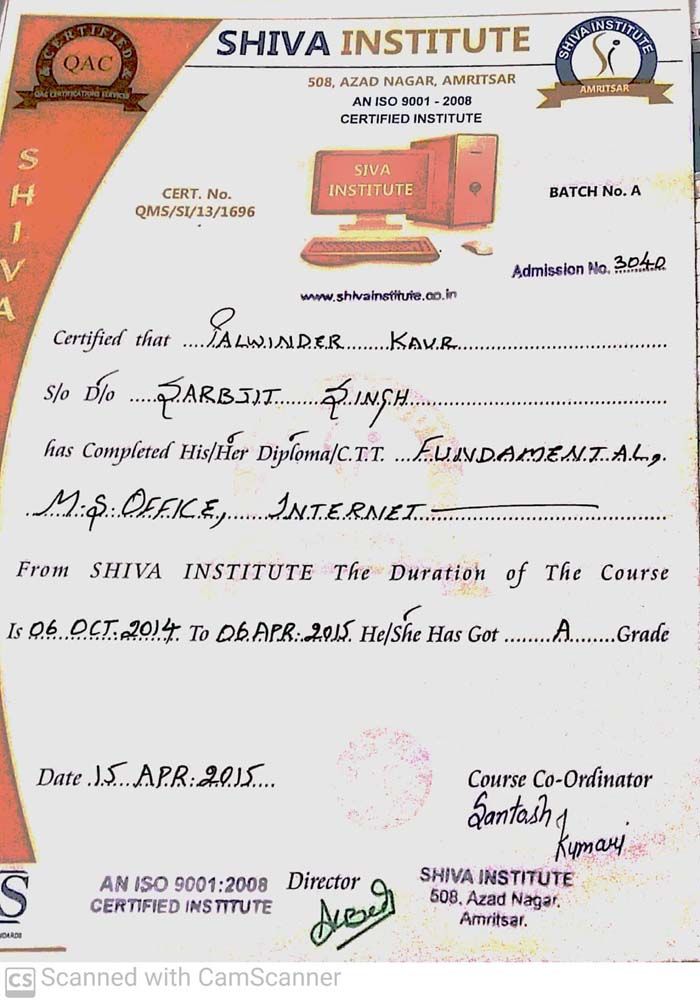 CERTIFIED
QAC
QAC CERTIFICATIONS SERVICES
SHIVA INSTITUTE
SHIVA INSTITUTE
AMRITSAR
508, AZAD NAGAR, AMRITSAR
AN ISO 9001 - 2008
CERTIFIED INSTITUTE
SHIVA
SIVA
INSTITUTE
CERT. No.
QMS/SI/13/1696
BATCH No. A
Admission No. 3040
www.shivainstitute.co.in
Certified that ....PALWINDER.......KAUR..........
S/o D/o .....SARBJIT.......SINGH..........
has Completed His/Her Diploma/C.T.T. ...FUNDAMENTAL,.
M.S.OFFICE,......INTERNET
From SHIVA INSTITUTE The Duration of The Course
Is 06 OCT. 2014 To 06 APR. 2015 He/She Has Got ........A.......Grade
Date .15...APR. 2015....
Course Co-Ordinator
Santosh Kumari
AN ISO 9001:2008
CERTIFIED INSTITUTE
Director
SHIVA INSTITUTE
508, Azad Nagar,
Amritsar.
CS Scanned with CamScanner